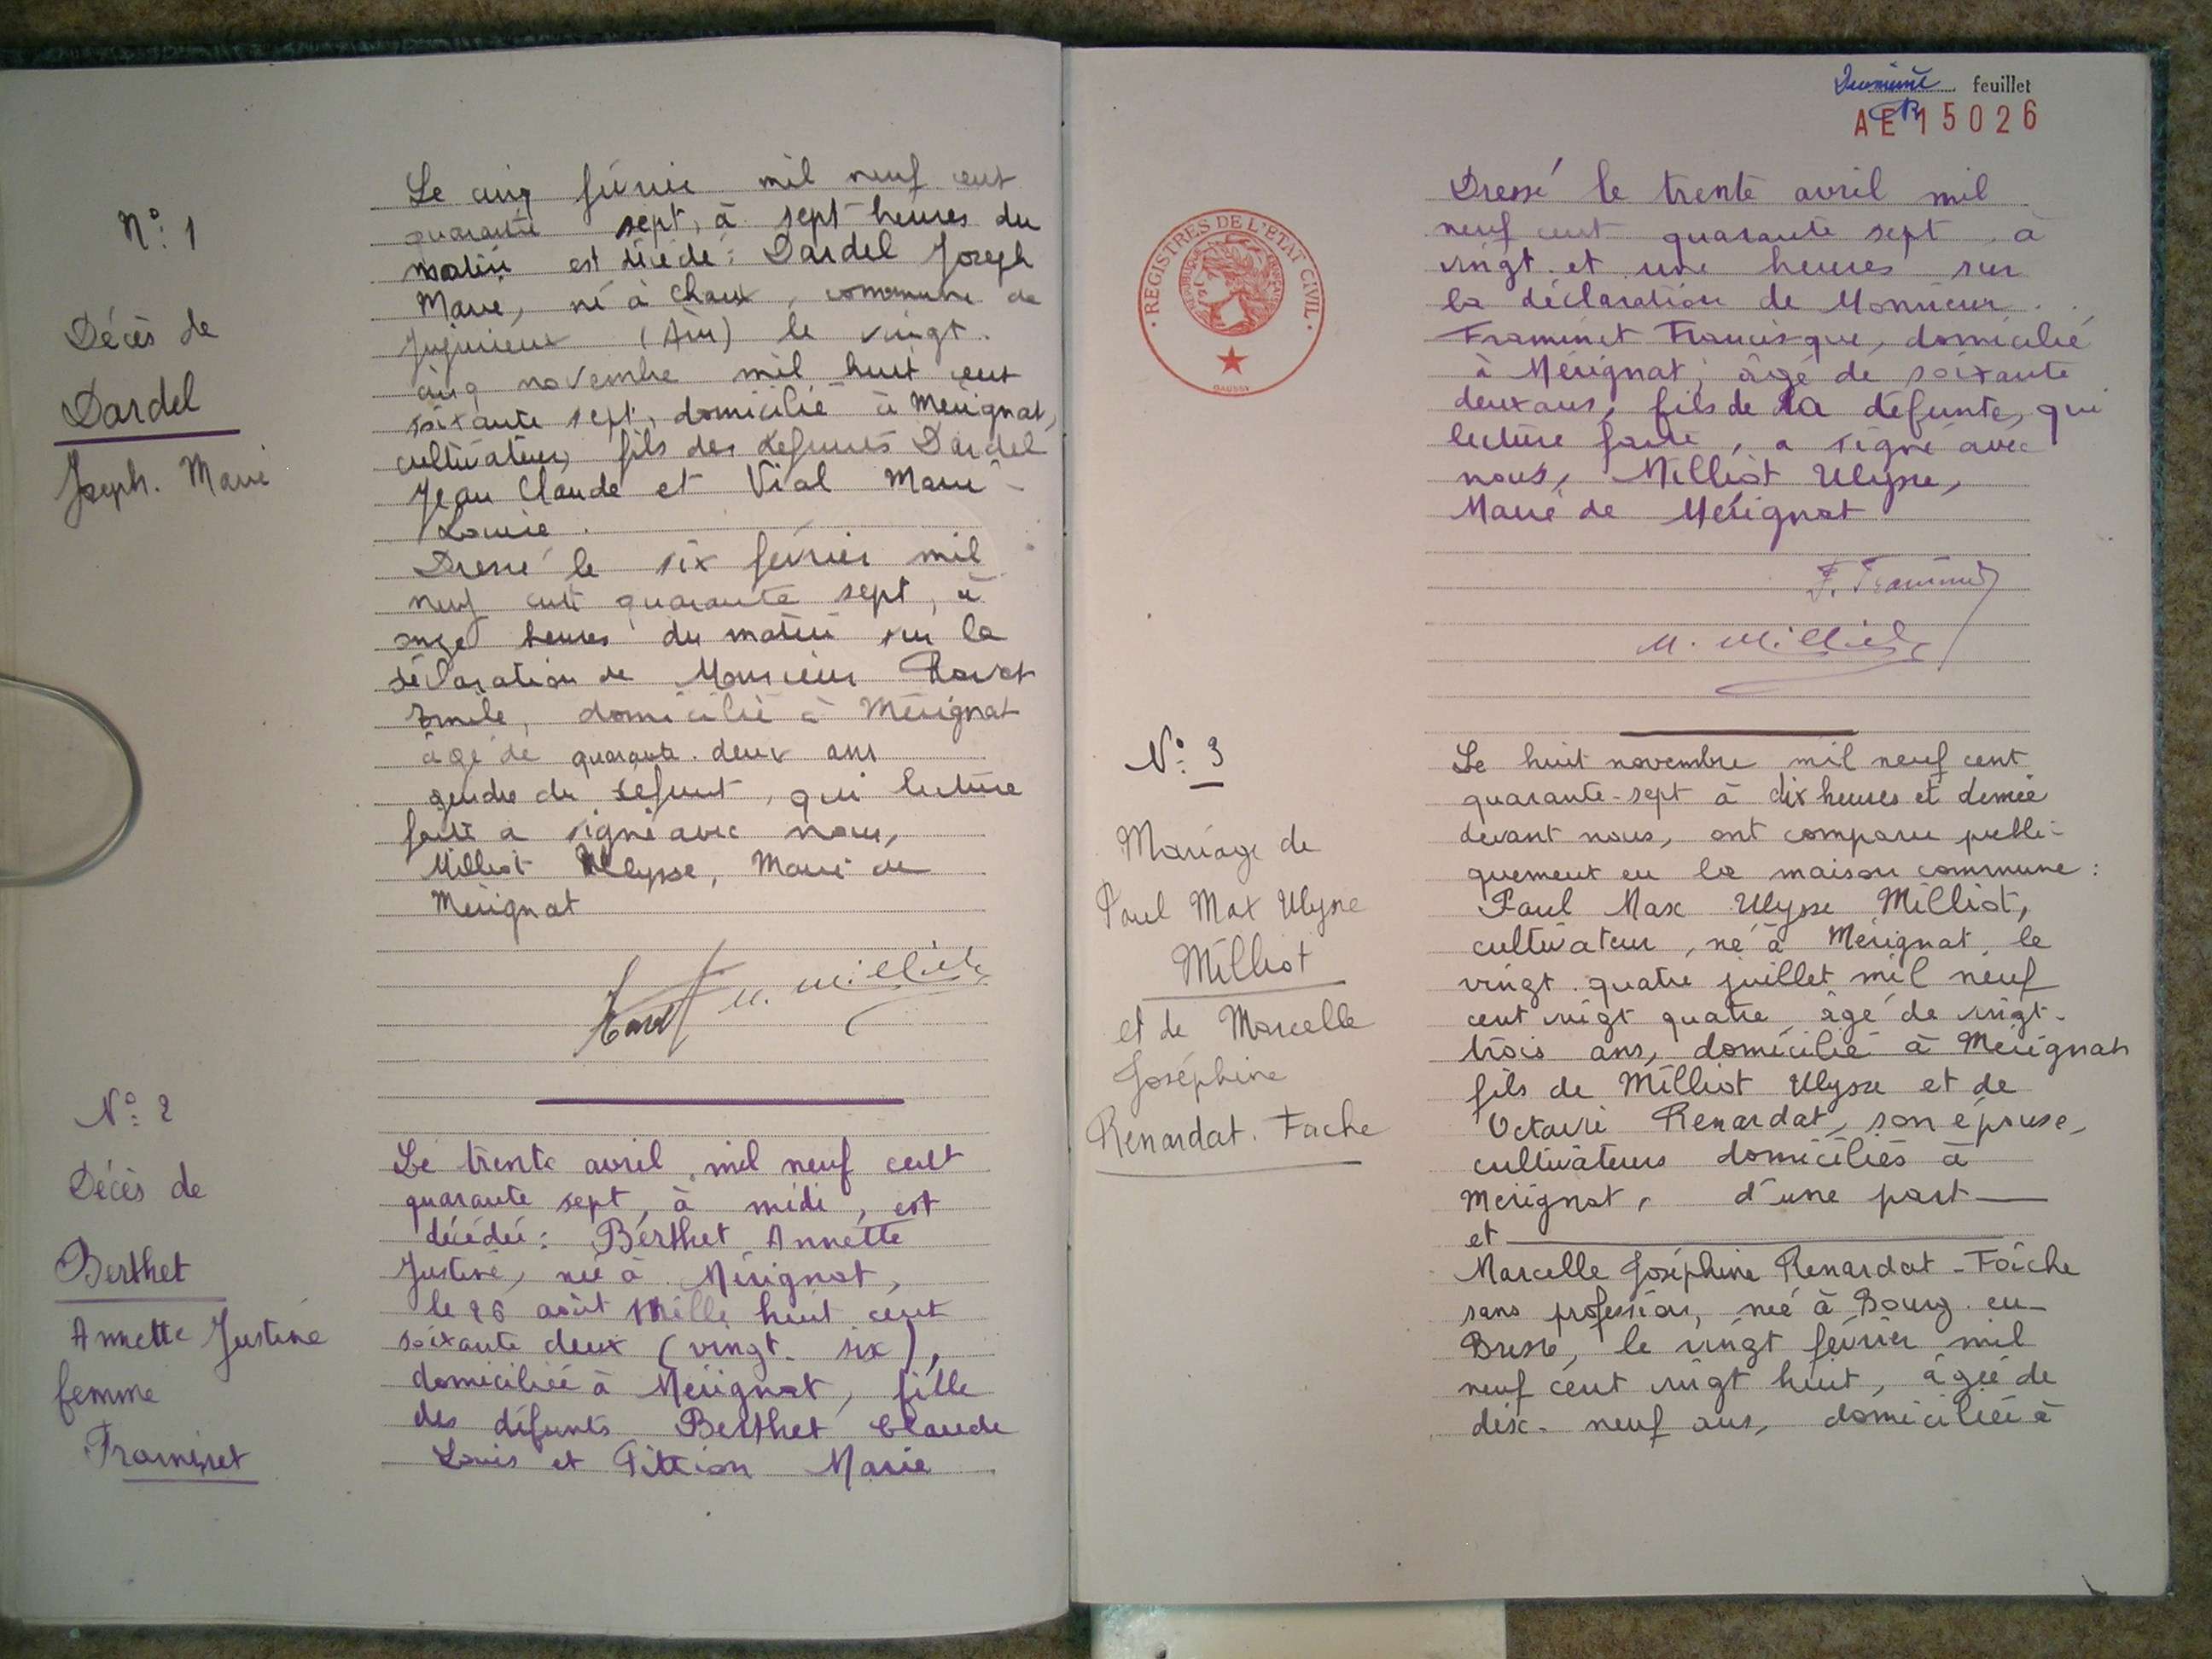 N°: 1
Décès de
Dardel
Joseph. Marie
Le cinq février mil neuf cent
quarante sept, à sept heures du
matin est décédé: Dardel Joseph
Marie, né à Chaux, commune de
Jujurieux (Ain) le vingt.
cinq novembre mil huit cent
soixante sept, domicilié à Mérignat,
cultivateur, fils des défunts Dardel
Jean Claude et Vial Marie-
Louise.
Dressé le six février mil
neuf cent quarante sept, à
onze heures du matin sur la
déclaration de Monsieur
Emile, domicilié à Mérignat
âgé de quarante. deux ans
gendre du défunt, qui lecture
faite a signé avec nous,
Milliot Ulysse, Maire de
Mérignat
U. Milliot
N°: 2
Décès de
Berthet
Annette Justine
femme
Framinet
Le trente avril mil neuf cent
quarante sept, à midi, est
décédée: Berthet Annette
Justine, née à Mérignat,
le 26 août Mille huit cent
soixante deux (vingt. six),
domiciliée à Mérignat, fille
des défunts Berthet Claude
Louis et Pittion Marie
Deuxième feuillet
AE 15026
REGISTRES DE L'ÉTAT CIVIL
RÉPUBLIQUE FRANÇAISE
Dressé le trente avril mil
neuf cent quarante sept à
vingt. et une heures sur
la déclaration de Monsieur
Framinet Francisque, domicilié
à Mérignat, âgé de soixante
deux ans, fils de la défunte, qui
lecture faite, a signé avec
nous, Milliot Ulysse,
Maire de Mérignat
F. Framinet
U. Milliot
N°: 3
Mariage de
Paul Max Ulysse
Milliot
et de Marcelle
Joséphine
Renardat. Fache
Le huit novembre mil neuf cent
quarante-sept à dix heures et demie
devant nous, ont comparu publi-
quement en la maison commune:
Paul Max Ulysse Milliot,
cultivateur, né à Mérignat le
vingt. quatre juillet mil neuf
cent vingt quatre, âgé de vingt-
trois ans, domicilié à Mérignat,
fils de Milliot Ulysse et de
Octavie Renardat, son épouse,
cultivateurs domiciliés à
Mérignat, d'une part
et
Marcelle Joséphine Renardat-Fâche
sans profession, née à Bourg. en-
Bresse, le vingt février mil
neuf cent vingt huit, âgée de
dix-neuf ans, domiciliée à